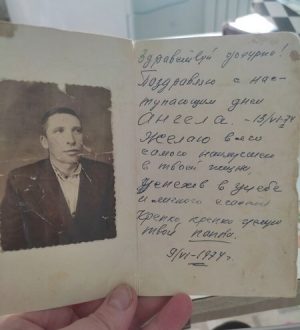 Здравствуй дочурка!
Поздравляю с нас-
тупающим днем
Ангела. - 13/VI-74
Желаю всего
самого наилучшего
в твоей жизни,
успехов в учебе
и много
Крепко, крепко целую
твой папа.
9/VI-1974г.